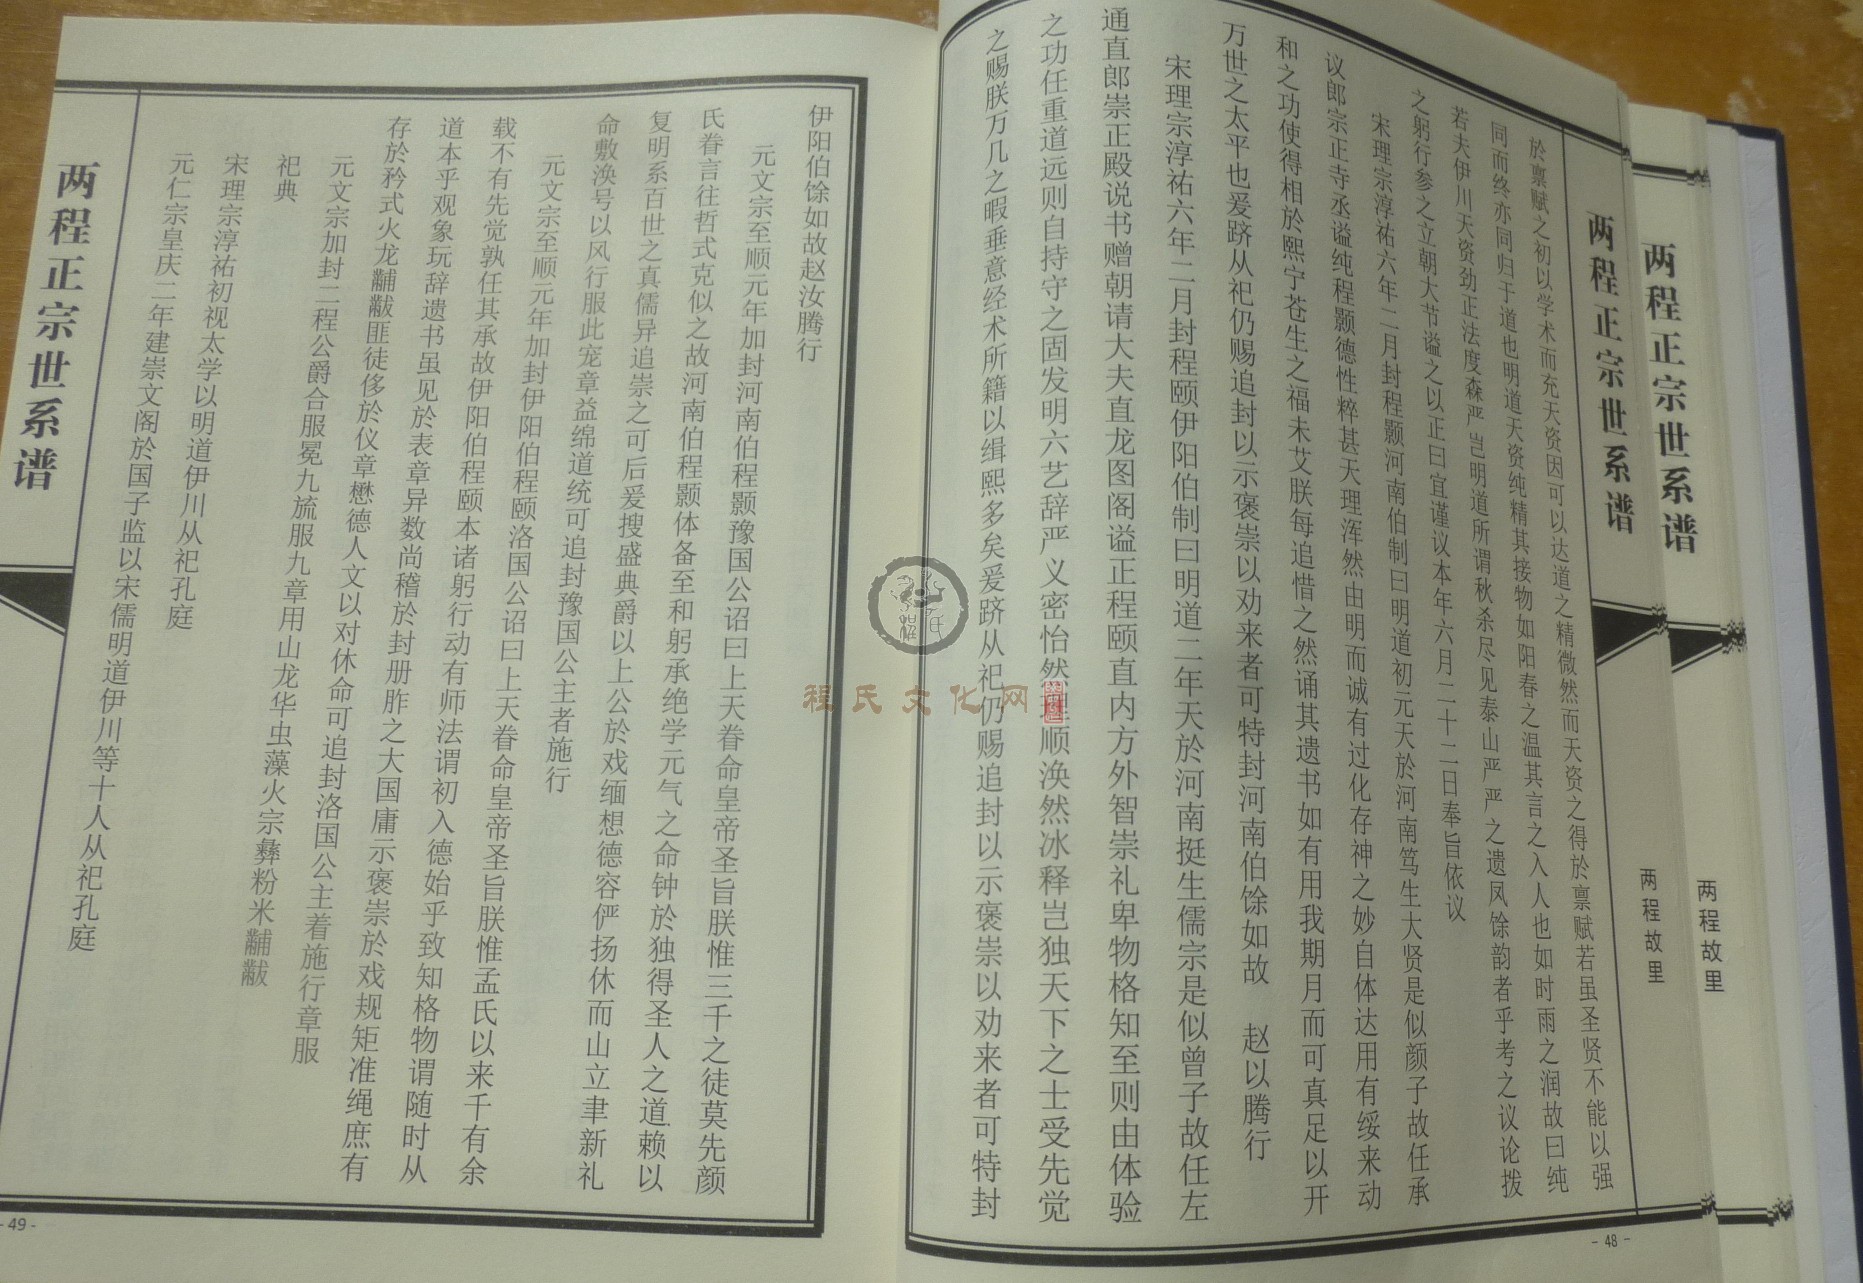 两程正宗世系谱
两程故里
两程正宗世系谱
两程故里
於禀赋之初以学术而充天资因可以达道之精微然而天资之得於禀赋若虽圣贤不能以强
同而终亦同归于道也明道天资纯精其接物如阳春之温其言之入人也如时雨之润故曰纯
若夫伊川天资劲正法度森严岂明道所谓秋杀尽见泰山严严之遗风馀韵者乎考之议论拨
之躬行参之立朝大节谥之以正曰宜谨议本年六月二十二日奉旨依议
宋理宗淳祐六年二月封程颢河南伯制曰明道初元天於河南笃生大贤是似颜子故任承
议郎宗正寺丞谥纯程颢德性粹甚天理浑然由明而诚有过化存神之妙自体达用有绥来动
和之功使得相於熙宁苍生之福未艾朕每追惜之然诵其遗书如有用我期月而可真足以开
万世之太平也爰跻从祀仍赐追封以示褒崇以劝来者可特封河南伯馀如故 赵以腾行
宋理宗淳祐六年二月封程颐伊阳伯制曰明道二年天於河南挺生儒宗是似曾子故任左
通直郎崇正殿说书赠朝请大夫直龙图阁谥正程颐直内方外智崇礼卑物格知至则由体验
之功任重道远则自持守之固发明六艺辞严义密怡然理顺涣然冰释岂独天下之士受先觉
之赐朕万几之暇垂意经术所籍以缉熙多矣爰跻从祀仍赐追封以示褒崇以劝来者可特封
- 48 -
伊阳伯馀如故赵汝腾行
元文宗至顺元年加封河南伯程颢豫国公诏曰上天眷命皇帝圣旨朕惟三千之徒莫先颜
氏眷言往哲式克似之故河南伯程颢体备至和躬承绝学元气之命钟於独得圣人之道赖以
复明系百世之真儒异追崇之可后爰搜盛典爵以上公於戏缅想德容俨扬休而山立聿新礼
命敷涣号以风行服此宠章益绵道统可追封豫国公主者施行
元文宗至顺元年加封伊阳伯程颐洛国公诏曰上天眷命皇帝圣旨朕惟孟氏以来千有余
载不有先觉孰任其承故伊阳伯程颐本诸躬行动有师法谓初入德始乎致知格物谓随时从
道本乎观象玩辞遗书虽见於表章异数尚稽於封册胙之大国庸示褒崇於戏规矩准绳庶有
存於矜式火龙黼黻匪徒侈於仪章懋德人文以对休命可追封洛国公主着施行章服
元文宗加封二程公爵合服冕九旒服九章用山龙华虫藻火宗彝粉米黼黻
祀典
宋理宗淳祐初视太学以明道伊川从祀孔庭
元仁宗皇庆二年建崇文阁於国子监以宋儒明道伊川等十人从祀孔庭
两程正宗世系谱
- 49 -
程氏文化网